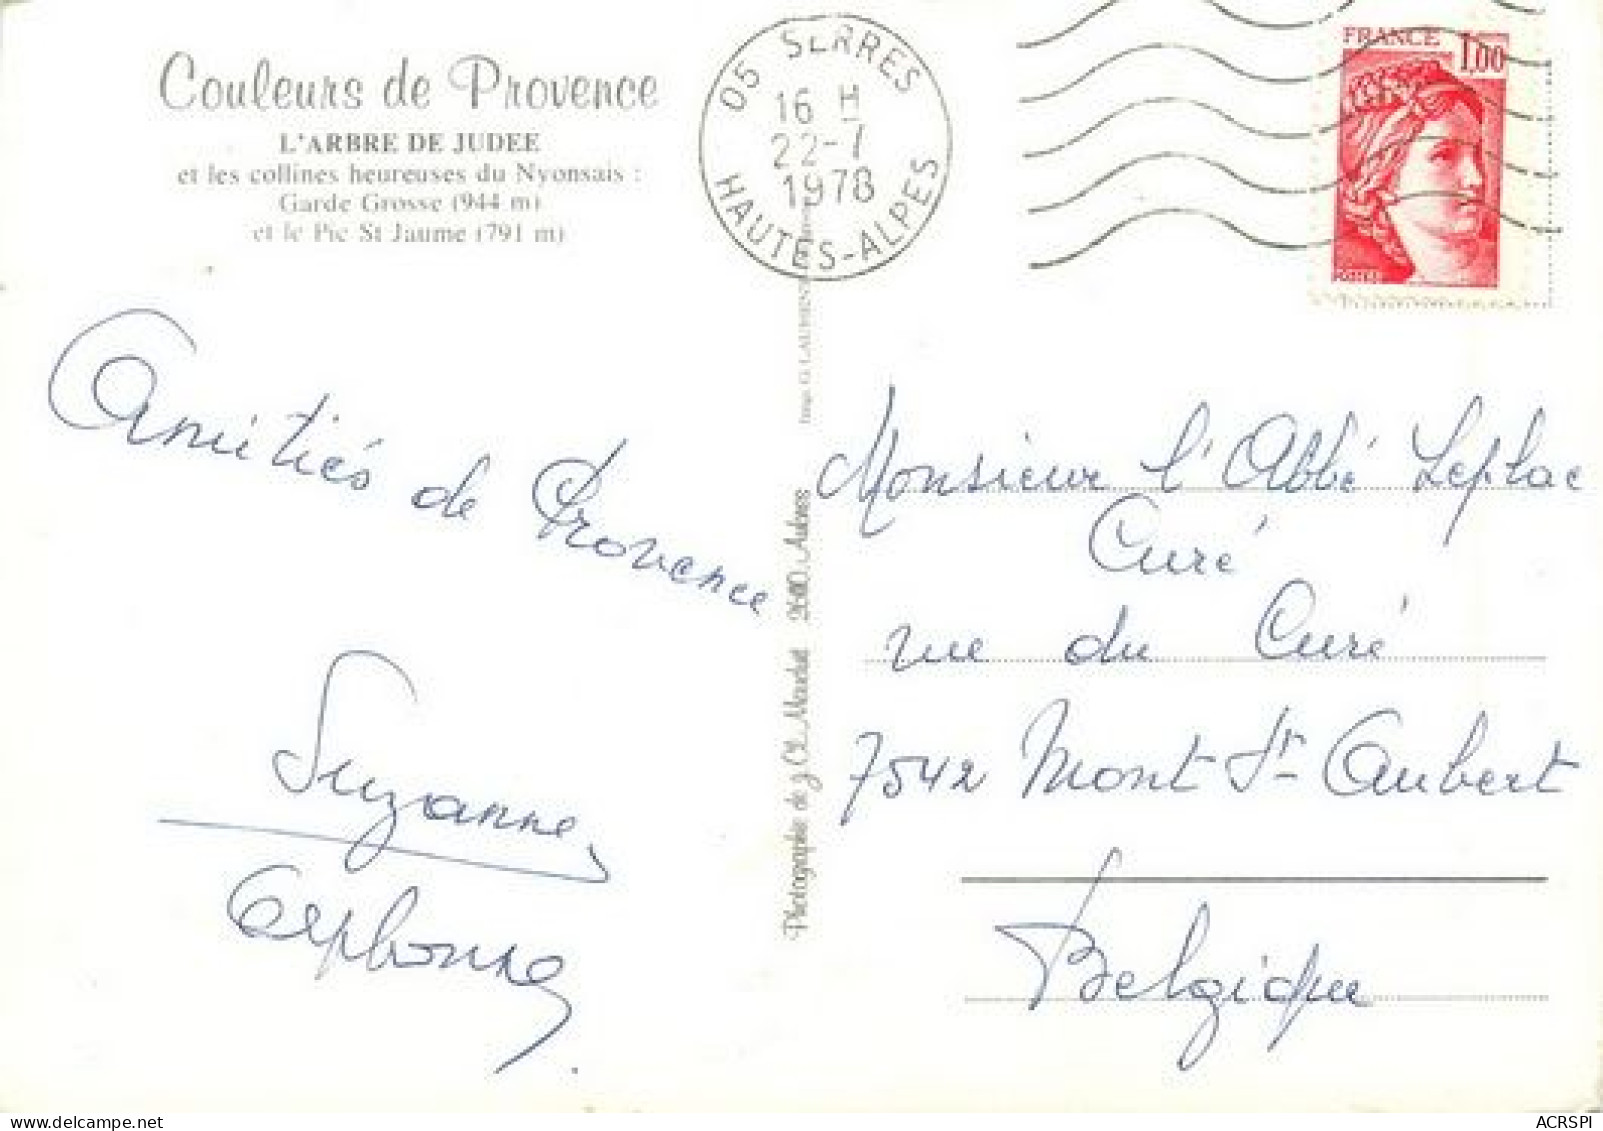 Couleurs de Provence
L'ARBRE DE JUDEE
et les collines heureuses du Nyonsais :
Garde Grosse (944 m)
et le Pic St Jaume (791 m)
05 SERRES
16 H
22-7
1978
HAUTES-ALPES
FRANCE 1,00
Amitiés de Provence
Suzanne
Photographie de J. Cl. Mouchet 26110 Aubres
Monsieur l'Abbé Leplae
Curé
rue du Curé
7542 Mont St Aubert
Belgique
ACRSPI